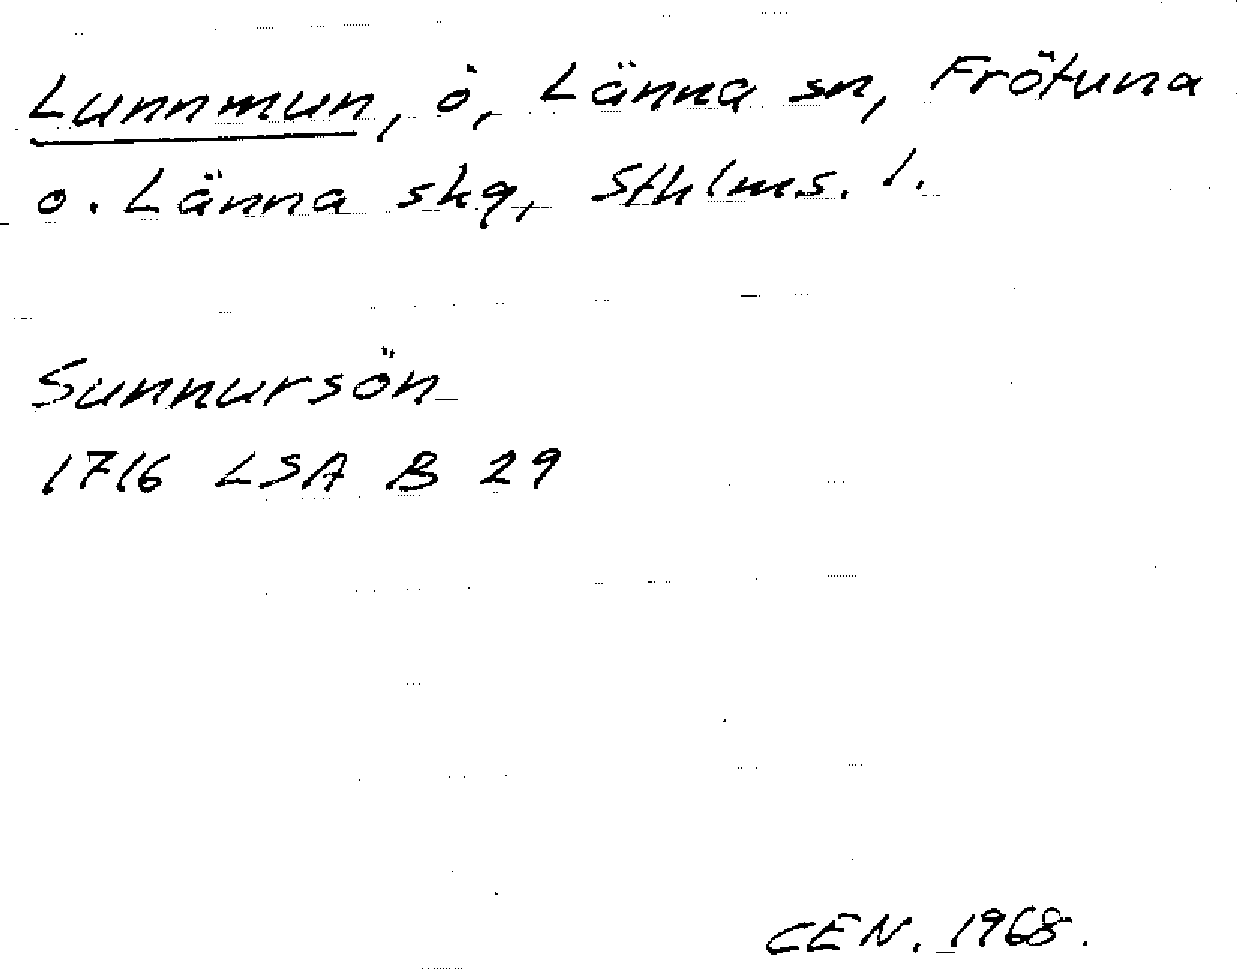 Lunnmun, ö, Länna sn, Frötuna
o. Länna skg, Sthlms. l.
Sunnursön
1716 LSA B 29
CEN. 1968.